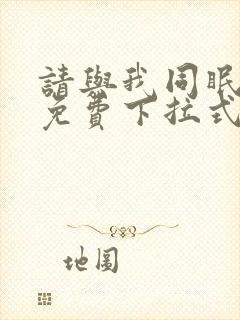 請與我同眠
免費下拉式
地圖